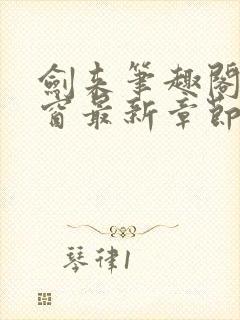 劍来筆趣閣
窗最新章節
琴律1